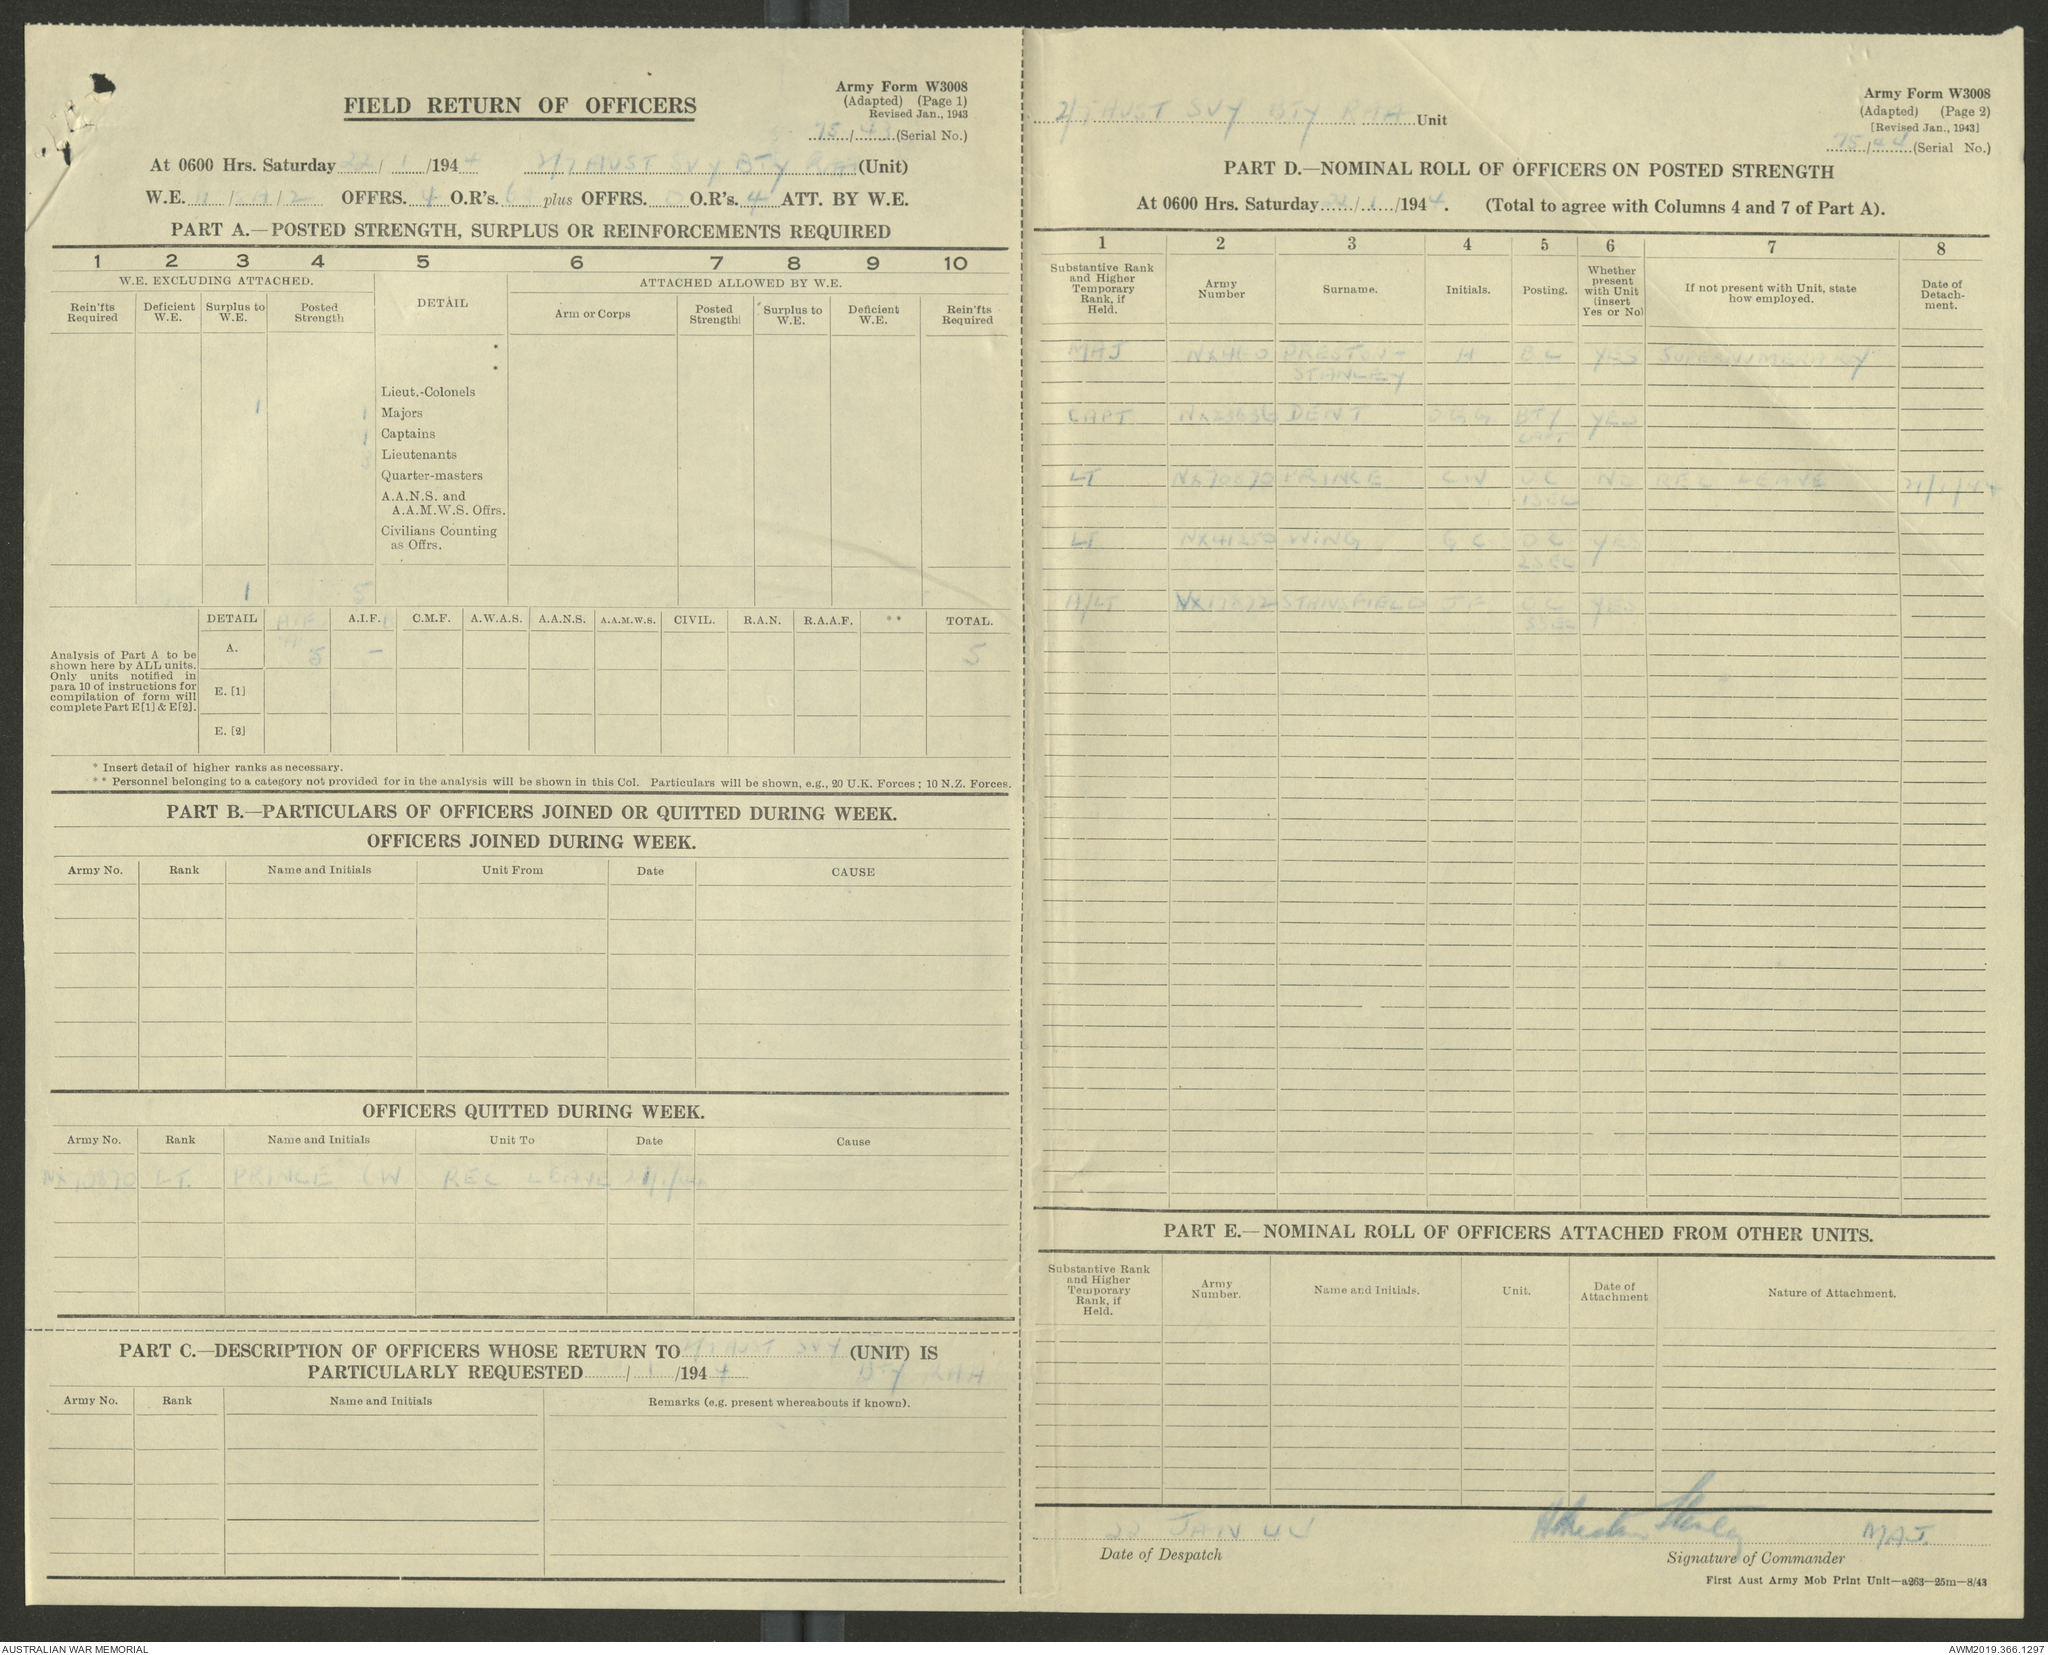 Army Form W3008
(Adapted) (Page 1)
Revised Jan., 1943
FIELD RETURN OF OFFICERS
75/43 (Serial No.)
At 0600 Hrs. Saturday 22/1/1944 2/7 AUST SVY BTY RAA (Unit)
W.E. 11/ /2 OFFRS. 4 O.R's. plus OFFRS. O.R's. 4 ATT. BY W.E.
PART A.—POSTED STRENGTH, SURPLUS OR REINFORCEMENTS REQUIRED
1 2 3 4 5 6 7 8 9 10
W.E. EXCLUDING ATTACHED. DETAIL ATTACHED ALLOWED BY W.E.
Rein'fts Required Deficient W.E. Surplus to W.E. Posted Strength Arm or Corps Posted Strength Surplus to W.E. Deficient W.E. Rein'fts Required
*
*
Lieut.-Colonels
1 1 Majors
1 Captains
3 Lieutenants
Quarter-masters
A.A.N.S. and
A.A.M.W.S. Offrs.
Civilians Counting
as Offrs.
1 5
DETAIL AIF A.I.F. C.M.F. A.W.A.S. A.A.N.S. A.A.M.W.S. CIVIL. R.A.N. R.A.A.F. ** TOTAL.
Analysis of Part A to be
shown here by ALL units.
Only units notified in
para 10 of instructions for
compilation of form will
complete Part E[1] & E[2].
A. 5 – 5
E. [1]
E. [2]
* Insert detail of higher ranks as necessary.
** Personnel belonging to a category not provided for in the analysis will be shown in this Col. Particulars will be shown, e.g., 20 U.K. Forces; 10 N.Z. Forces.
PART B.—PARTICULARS OF OFFICERS JOINED OR QUITTED DURING WEEK.
OFFICERS JOINED DURING WEEK.
Army No. Rank Name and Initials Unit From Date CAUSE
OFFICERS QUITTED DURING WEEK.
Army No. Rank Name and Initials Unit To Date Cause
NX70870 LT. PRINCE CW REC LEAVE 21/1/44
PART C.—DESCRIPTION OF OFFICERS WHOSE RETURN TO 2/7 AUST SVY (UNIT) IS
BTY RAA
PARTICULARLY REQUESTED /1/1944
Army No. Rank Name and Initials Remarks (e.g. present whereabouts if known).
Army Form W3008
(Adapted) (Page 2)
[Revised Jan., 1943]
2/7 AUST SVY BTY RAA Unit
75/44 (Serial No.)
PART D.—NOMINAL ROLL OF OFFICERS ON POSTED STRENGTH
At 0600 Hrs. Saturday 22/1/1944. (Total to agree with Columns 4 and 7 of Part A).
1 2 3 4 5 6 7 8
Substantive Rank and Higher Temporary Rank, if Held. Army Number Surname. Initials. Posting. Whether present with Unit (insert Yes or No) If not present with Unit, state how employed. Date of Detachment.
MAJ NX460 PRESTON- H BC YES SUPERNUMERARY
STANLEY
CAPT DENT OGG BTY YES
LT NX70870 PRINCE CW OC NO REC LEAVE 21/1/44
1 SEC
LT NX41250 WING G C OC YES
2 SEC
A/LT STANSFIELD J F OC YES
3 SEC
PART E.—NOMINAL ROLL OF OFFICERS ATTACHED FROM OTHER UNITS.
Substantive Rank and Higher Temporary Rank, if Held. Army Number. Name and Initials. Unit. Date of Attachment Nature of Attachment.
22 JAN 44 H Preston Stanley MAJ.
Date of Despatch Signature of Commander
First Aust Army Mob Print Unit—a263—25m—8/43
AUSTRALIAN WAR MEMORIAL AWM2019.366.1297